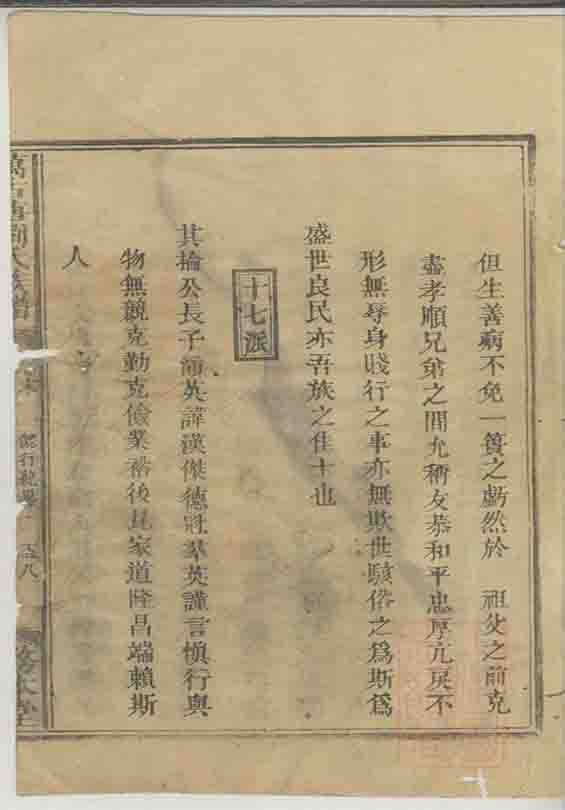 但生善病不免一簣之虧然於 祖父之前克
盡孝順兄弟之間允稱友恭和平忠厚亢戾不
形無辱身賤行之事亦無欺世駭俗之爲斯爲
盛世良民亦吾族之佳士也
十七派
其掄公長子沛英諱漢傑德冠羣英謹言愼行與
物無競克勤克儉業裕後昆家道隆昌端賴斯
人
氏族譜